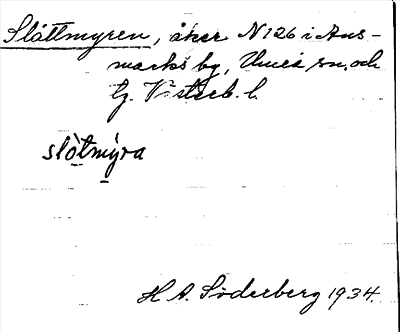 Slåttmyren, åker N126 i Ans-
marks by, Umeå sn. och
tg. V:stseb. l.
slòtmýra
H A. Söderberg 1934.